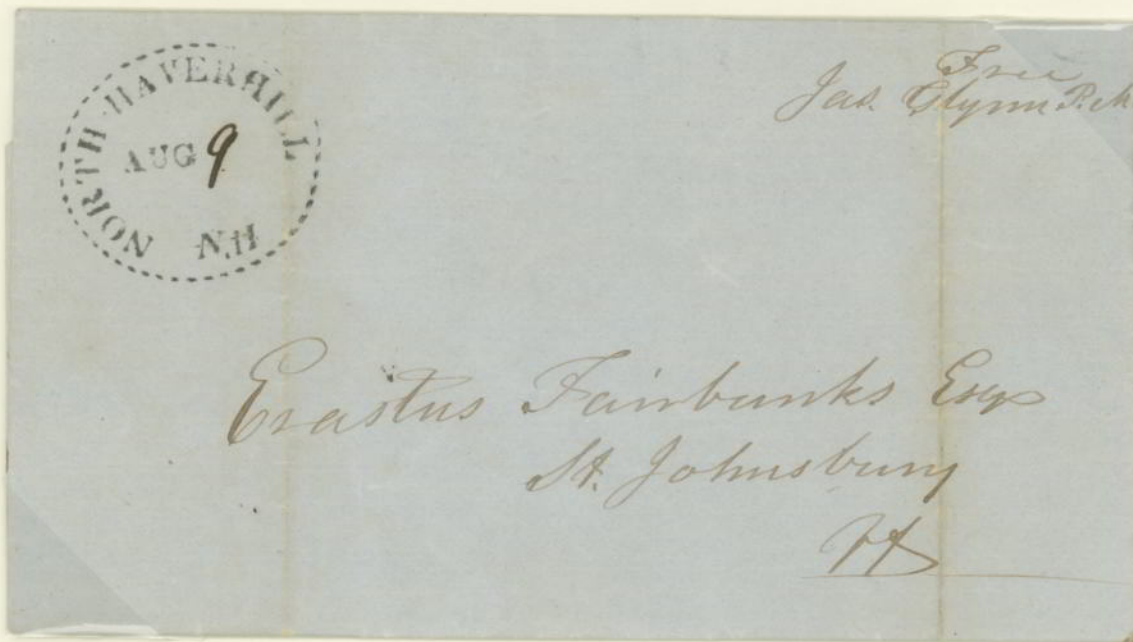 NORTH HAVERHILL
AUG 9
N.H
Free
Jas. Glynn P.M
Erastus Fairbanks Esqr
St. Johnsbury
Vt